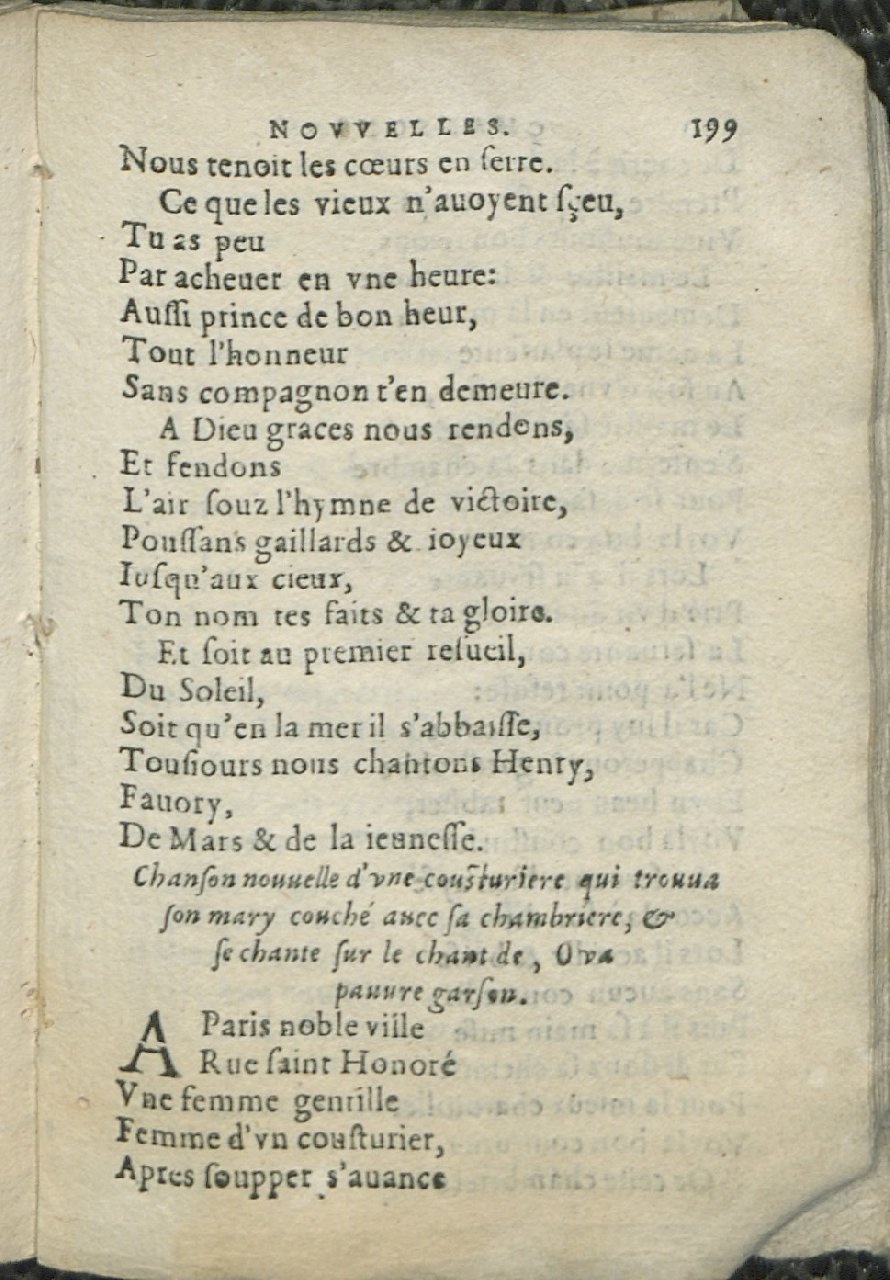 NOVVELLES. 199
Nous tenoit les cœurs en ſerre.
Ce que les vieux n'auoyent ſçeu,
Tu as peu
Par acheuer en vne heure:
Auſſi prince de bon heur,
Tout l'honneur
Sans compagnon t'en demeure.
A Dieu graces nous rendons,
Et fendons
L'air ſouz l'hymne de victoire,
Pouſſans gaillards & ioyeux
Iuſqu'aux cieux,
Ton nom tes faits & ta gloire.
Et ſoit au premier reſueil,
Du Soleil,
Soit qu'en la mer il s'abbaiſſe,
Touſiours nous chantons Henry,
Fauory,
De Mars & de la ieuneſſe.
Chanſon nouuelle d'vne couſturiere qui trouua
ſon mary couché auec ſa chambriere, &
ſe chante ſur le chant de, O va
pauure garſon.
A Paris noble ville
Rue ſaint Honoré
Vne femme gentille
Femme d'vn couſturier,
Apres ſoupper s'auance